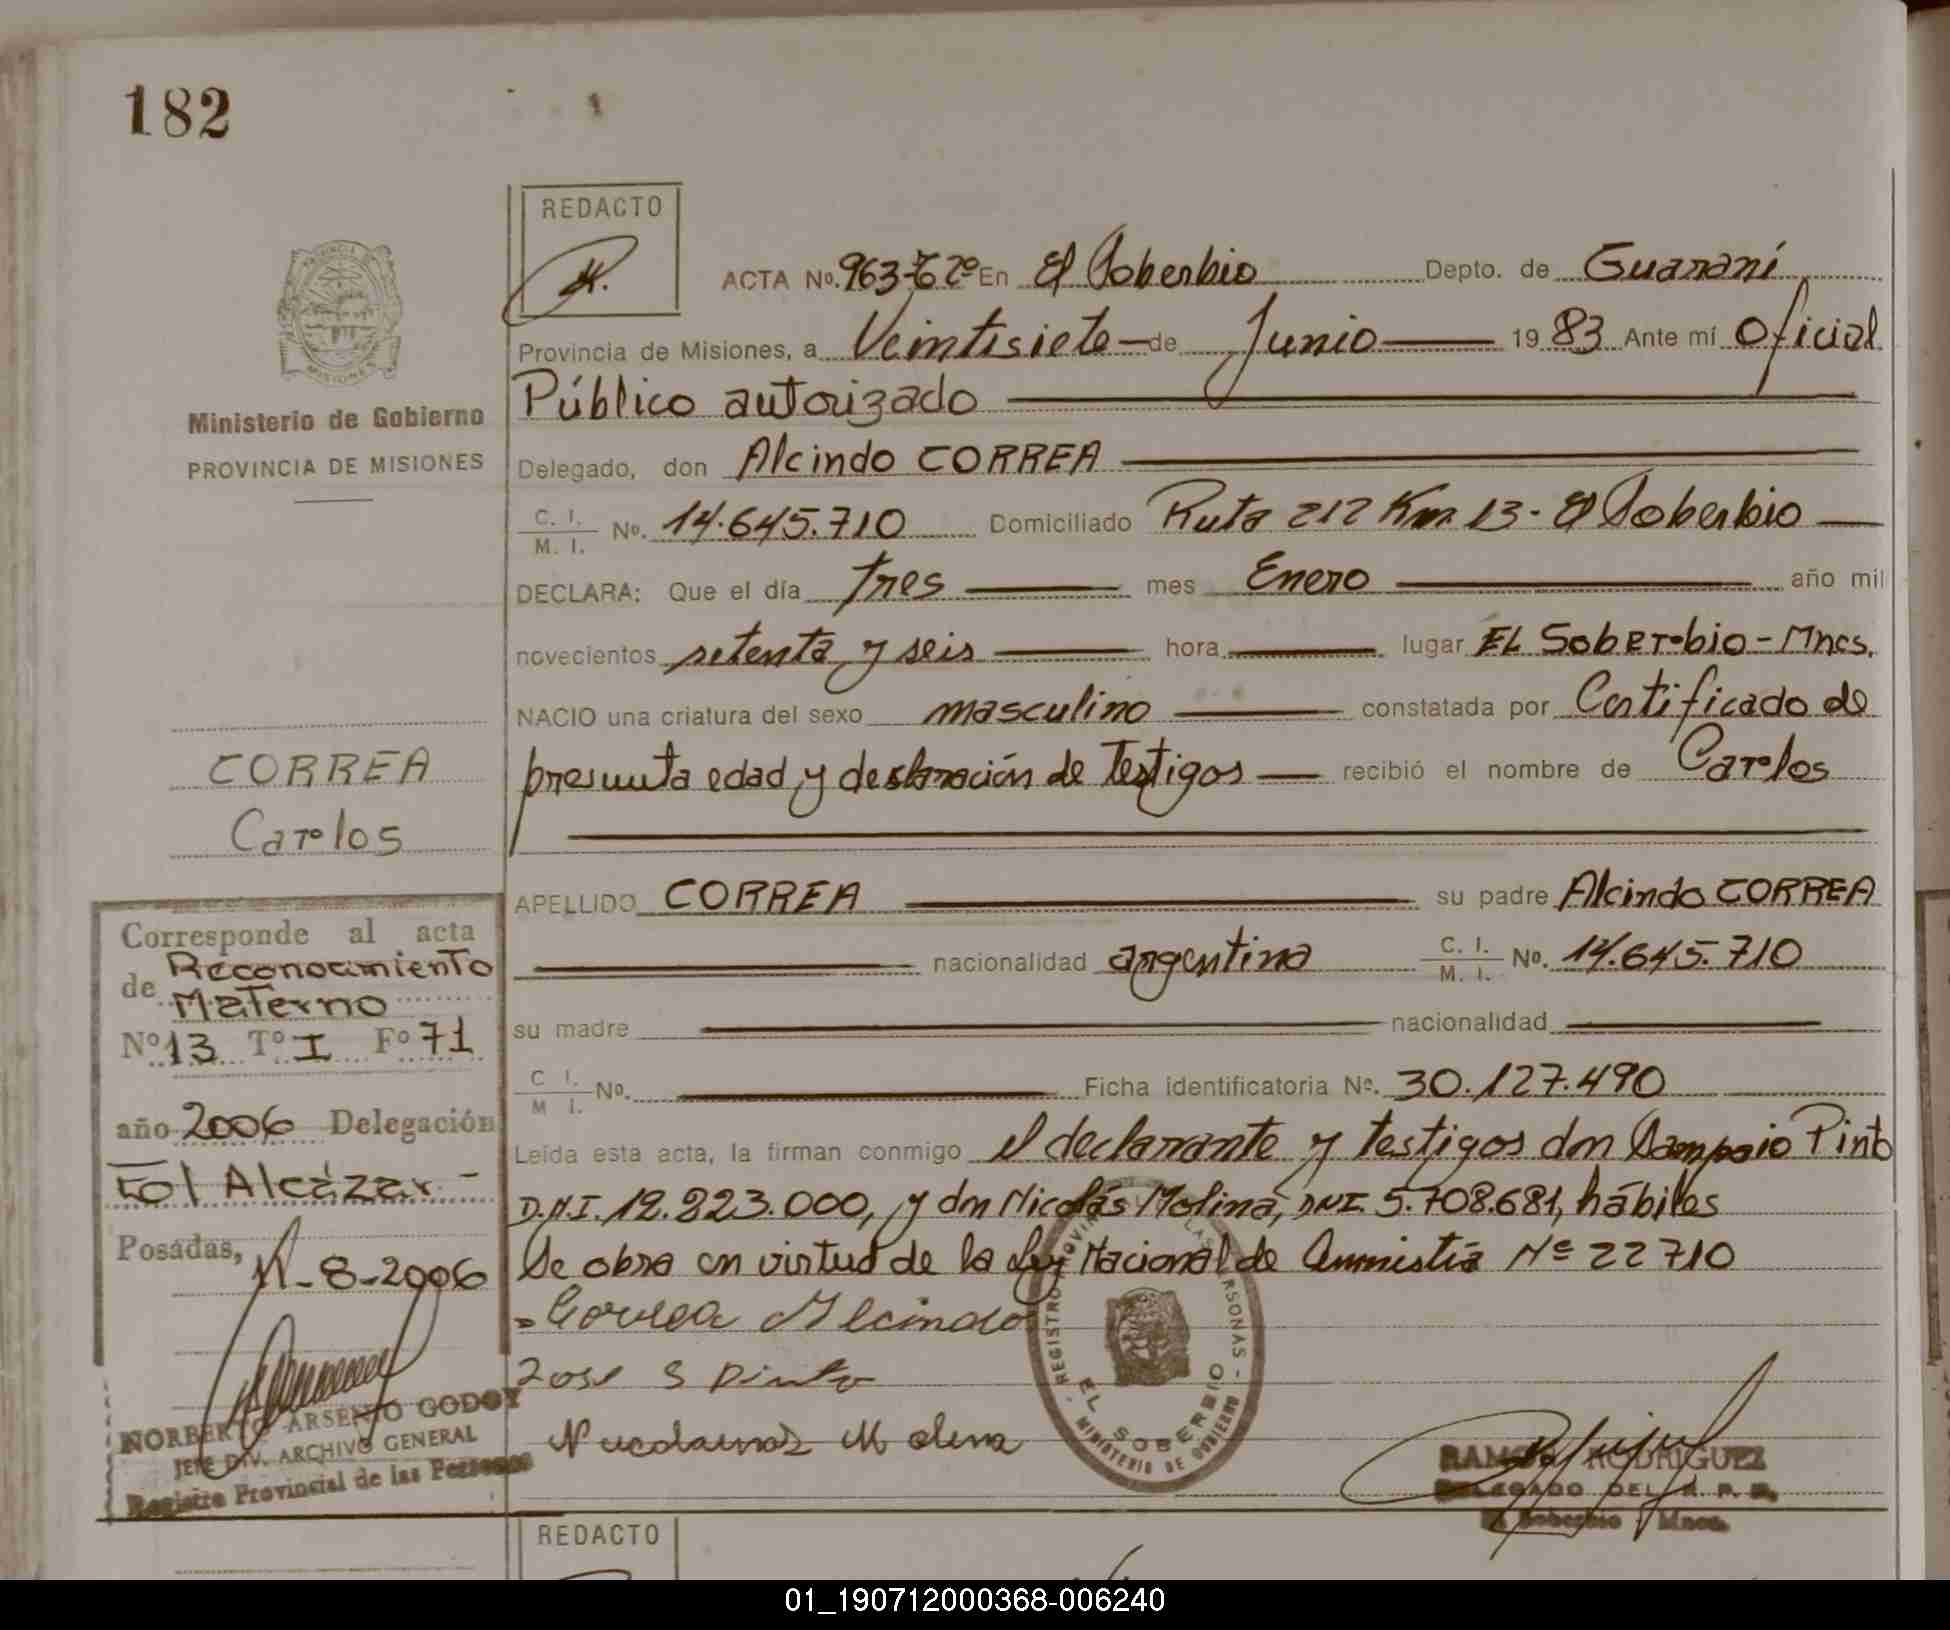 182
REDACTO
ACTA No. 963-Tº 2º En El Soberbio Depto. de Guaraní
Provincia de Misiones, a Veintisiete de Junio 19 83 Ante mí Oficial
Público autorizado
Delegado, don Alcindo CORREA
C. I. / M. I. No. 14.645.710 Domiciliado Ruta 212 Km. 13 - El Soberbio
DECLARA: Que el día tres mes Enero año mil
novecientos setenta y seis hora lugar EL Soberbio - Mnes.
NACIO una criatura del sexo masculino constatada por Certificado de
presunta edad y declaración de Testigos recibió el nombre de Carlos
APELLIDO CORREA su padre Alcindo CORREA
nacionalidad argentina C. I. / M. I. No. 14.645.710
su madre nacionalidad
C I. / M I. No. Ficha identificatoria No. 30.127.490
Leída esta acta, la firman conmigo el declarante y testigos don Sampaio Pinto
D.N.I. 12.223.000, y don Nicolás Molina, DNI. 5.708.681, hábiles
Se obra en virtud de la Ley Nacional de Amnistía Nº 22710
Correa Alcindo
Jose S Pinto
Molina
REGISTRO PROVINCIAL DE LAS PERSONAS - MINISTERIO DE GOBIERNO
EL SOBERBIO
RAMON RODRIGUEZ
DELEGADO DEL R. P. P.
El Soberbio Mnes.
PROVINCIA DE MISIONES
Ministerio de Gobierno
PROVINCIA DE MISIONES
CORREA
Carlos
Corresponde al acta
de Reconocimiento
Materno
Nº 13 Tº I Fº 71
año 2006 Delegación
Alcázar -
Posadas,
-8-2006
NORBERTO ARSENIO GODOY
JEFE DIV. ARCHIVO GENERAL
Registro Provincial de las Personas
REDACTO
01_190712000368-006240